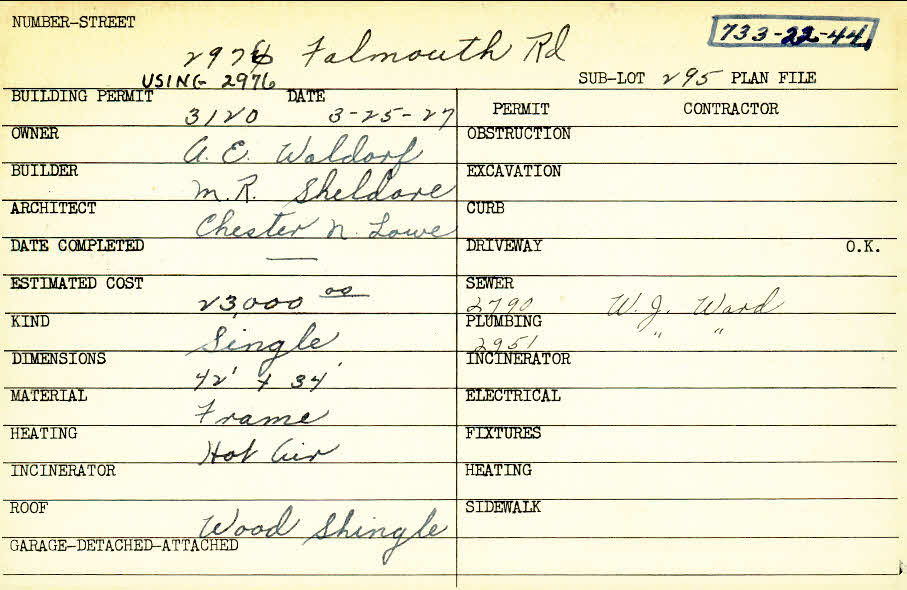 NUMBER-STREET
733-22-44
2976 Falmouth Rd
USING 2976
SUB-LOT 295 PLAN FILE
BUILDING PERMIT 3120 DATE 3-25-27
PERMIT CONTRACTOR
OWNER A. E. Waldorf
OBSTRUCTION
BUILDER M. R. Sheldore
EXCAVATION
ARCHITECT Chester N. Lowe
CURB
DATE COMPLETED —
DRIVEWAY O.K.
ESTIMATED COST 23,000 00
SEWER 2790 W. J. Ward
KIND Single
PLUMBING 2951 " "
DIMENSIONS 42' x 34'
INCINERATOR
MATERIAL Frame
ELECTRICAL
HEATING Hot Air
FIXTURES
INCINERATOR
HEATING
ROOF Wood Shingle
SIDEWALK
GARAGE-DETACHED-ATTACHED